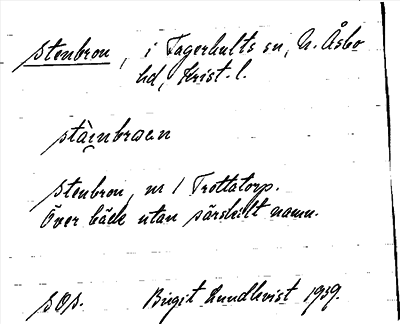 Stenbron, i Fagerhults sn, N. Åsbo
hd, Krist. l.
stäinbroen
Stenbron, nr 1 Trottatorp.
Över bäck utan särskilt namn.
SOS. Birgit Lundkvist 1939.